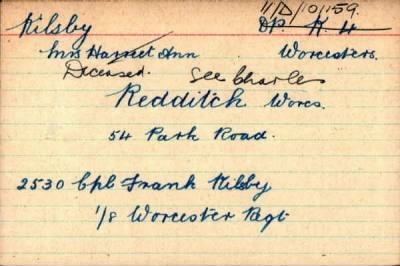 11/D/10/159.
Kilsby DP. K 4
Mrs Harriet Ann Worcesters.
Deceased. See Charles
Redditch Worcs.
54 Park Road.
2530 Cpl Frank Kilsby
1/8 Worcester Regt